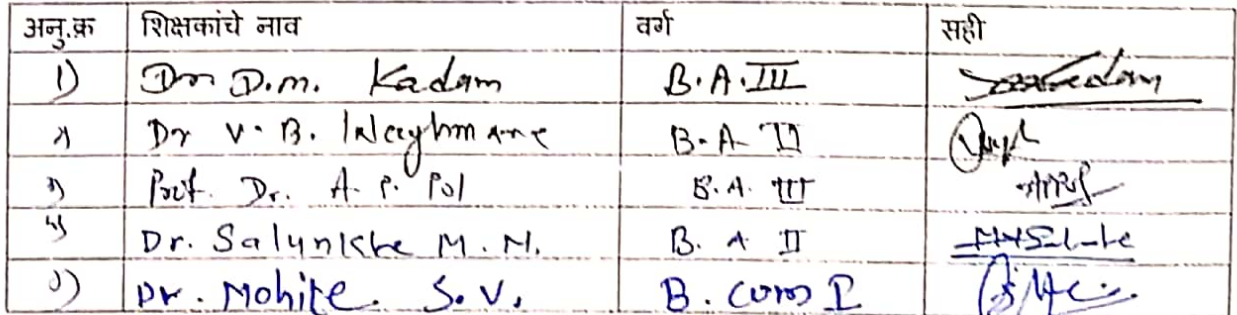 अनु.क्र शिक्षकांचे नाव वर्ग सही
1) Dr. D.M. Kadam B.A.III
२ Dr V. B. Waghmare B.A II
३) Prof. Dr. A. P. Pol B.A. III
४) Dr. Salunkhe M. N. B. A II
५) Dr. Mohite. S.V. B. Com I